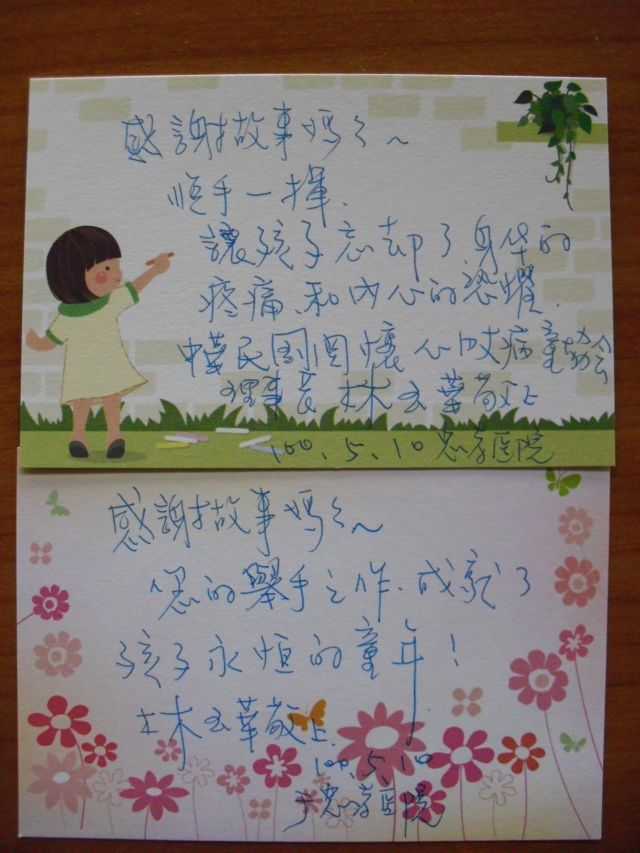 感謝故事媽々~
順手一揮.
讓孩子忘却了身体的
疼痛和內心的恐懼.
中華民国関懷心臓病童協会
理事長 林玉華敬上
100.5.10 忠孝医院
感謝故事媽々~
您的舉手之作.成就了
孩子永恒的童年!
林玉華敬上.
100.5.10
于忠孝医院